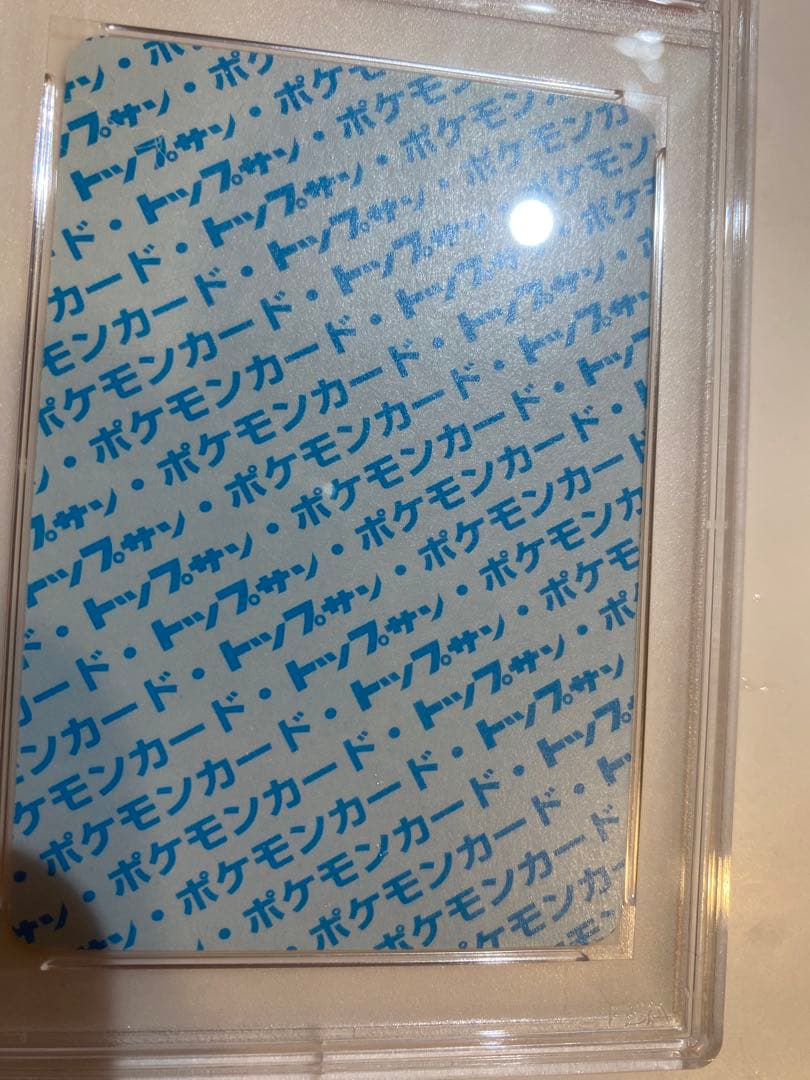 トップサン・ポケ
トップサン・ポケモ
トップサン・ポケモン
ド・トップサン・ポケモンカ
カード・トップサン・ポケモン
モンカード・トップサン・ポケモ
ポケモンカード・トップサン・ポケ
・ポケモンカード・トップサン・
プサン・ポケモンカード・トップサン
トップサン・ポケモンカード・トッ
・トップサン・ポケモンカード・
ード・トップサン・ポケモンカード
ンカード・トップサン・ポケモンカ
ケモンカード・トップサン・ポケモ
・ポケモンカード・トップサン・ポ
サン・ポケモンカード・トップサン
・ポケモンカード・トップ
ポケモンカード・ト
ケモンカード
PSA